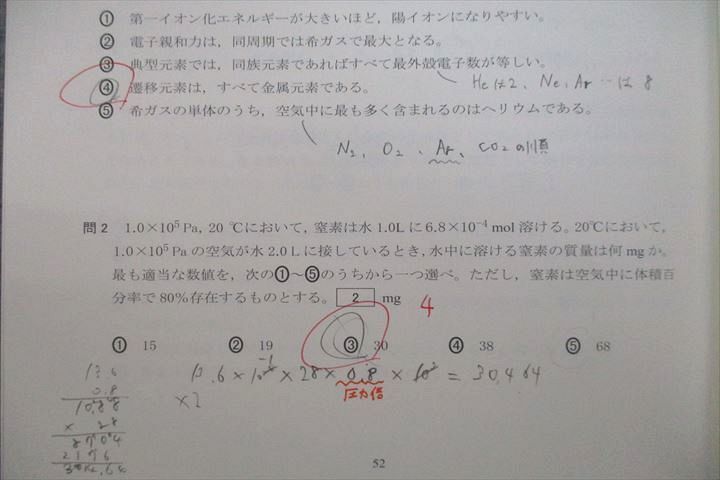 ① 第一イオン化エネルギーが大きいほど，陽イオンになりやすい。
② 電子親和力は，同周期では希ガスで最大となる。
③ 典型元素では，同族元素であればすべて最外殻電子数が等しい。
Heは2、Ne、Ar…は8
④ 遷移元素は，すべて金属元素である。
⑤ 希ガスの単体のうち，空気中に最も多く含まれるのはヘリウムである。
N₂、O₂、Ar、CO₂の順
問2 1.0×10⁵ Pa, 20 ℃において，窒素は水1.0Lに6.8×10⁻⁴ mol 溶ける。20℃において，
1.0×10⁵ Paの空気が水2.0 Lに接しているとき，水中に溶ける窒素の質量は何mgか。
最も適当な数値を，次の①〜⑤のうちから一つ選べ。ただし，窒素は空気中に体積百
分率で80％存在するものとする。 2 mg
4
① 15 ② 19 ③ 30 ④ 38 ⑤ 68
13.6 × 10⁻¹ × 28 × 0.8 × 10² = 30.464
×2
圧力倍
13.6
0.8
10.88
× 28
8704
2176
52